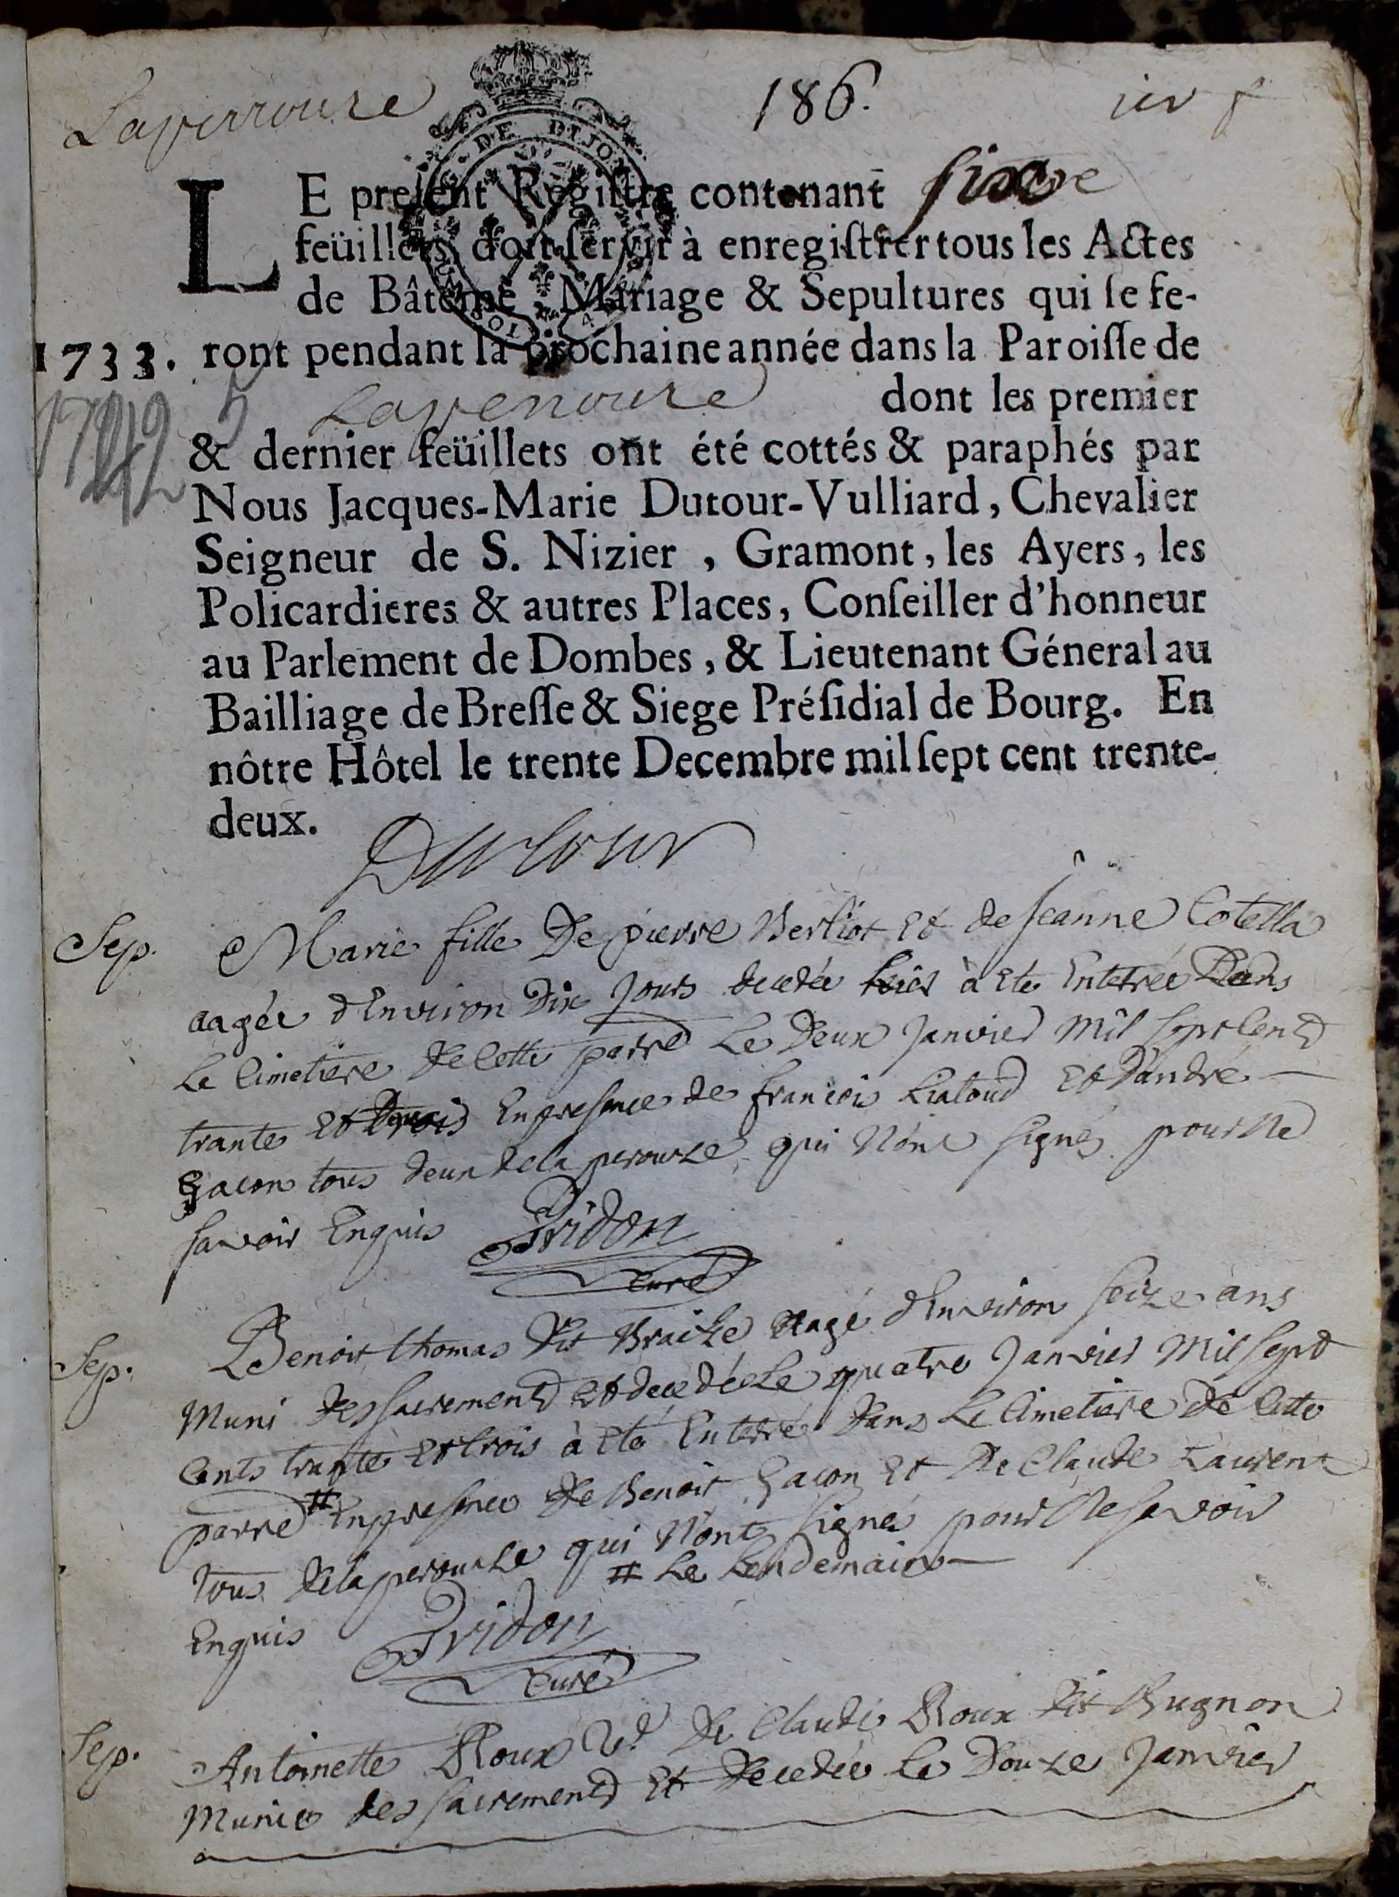 Laperrouze 186. ier f
G. DE DIJON
LE preſent Regiſtre contenant ſixe
feüillets doit ſervir à enregiſtrer tous les Actes
de Bâteme Mariage & Sepultures qui ſe fe-
1733. ront pendant la prochaine année dans la Paroiſſe de
Laperouze dont les premier
& dernier feüillets ont été cottés & paraphés par
Nous Jacques-Marie Dutour-Vulliard, Chevalier
Seigneur de S. Nizier, Gramont, les Ayers, les
Policardieres & autres Places, Conſeiller d'honneur
au Parlement de Dombes, & Lieutenant Géneral au
Bailliage de Breſſe & Siege Préſidial de Bourg. En
nôtre Hôtel le trente Decembre mil ſept cent trente-
deux.
Dutour
Sep. Marie fille De pierre Berliot Et de Jeanne Cotella
aagée d'Environ Dix Jours decedée hier à Ete Enterrée Dans
Le Cimetiere De Cette parre Le Deux Janvier Mil Sept Cents
trante Et trois En presence de francois Liatoud Et D'andré
Gacon tous deux de la perouze qui N'ont signés pour Ne
savoir Enquis Pridon
Curé
Sep. Benoit thomas Dit Braize aagé d'Environ seize ans
Muni Des sacrements Et decedé Le quatre Janvier Mil Sept
Cents trante Et trois à Eté Enterré Dans Le Cimetiere De Cette
parre # En presence De Benoit Gacon Et De Claude Laurent
tous De la perouze qui N'ont signés pour Ne savoir
# Le Lendemain
Enquis Pridon
Curé
Sep. Antoinette Roux V.e De Claude Roux Dit Bugnon
Munie des sacrements Et Decedée Le Douze Janvier